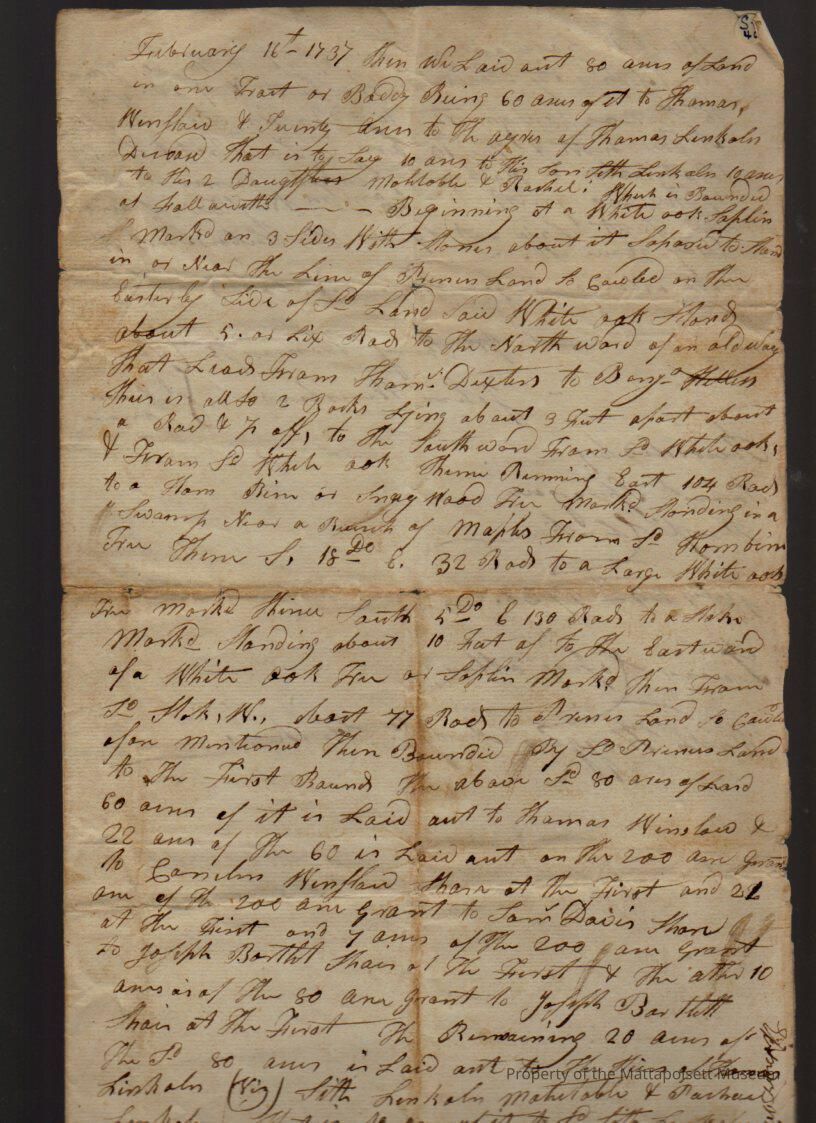 February 16th 1737 then We Laid out 80 acres of Land
in one Tract or Boddy Being 60 acres of it to Thomas
Winslow & Twenty acres to the of Thomas Linkoln
Deceasd That is to Say 10 acrs to His Son Seth Linkoln 10 acres
to His 2 Daughters Mehitoble & Rachel: Which is Bounded
as Followeth — Beginning at a White oak Saplin
Markd on 3 Sides With Stones about it Soposed to Stand
in or Near the Line of Land So Cawled on the
Easterly Side of Sd Land Said White oak Stands
about 5. or Six Rods to the North ward of an old way
That Leads From Dexters to Benja
there is allso 2 Rocks Lying about 3 Feet apart about
a Rod & ½ off, to the Southward From Sd White oak,
& From Sd White oak Thence Running East 104 Rods
to a Horn Bine or Wood Tree Markd Standing in a
Swamp Near a Bunch of Maples From Sd Hornbine
Tree Thence S, 18 Do E. 32 Rods to a Large White oak
Tree Markd Thence South 5 Do E 130 Rods to a Stake
Markd Standing about 10 Feet of to The Eastward
of a White oak Tree or Saplin Markd then From
Sd Stake, W., about 77 Rods to Land So Cawld
afore Mentioned Then Bounded By Sd Land
to The First Bounds The above Sd 80 acres of Land
60 acrs of it is Laid out to Thomas Winslow &
22 acrs of The 60 is Laid out on the 200 acre Grant
to Winslow Share at the First and 21
acre of the 200 acre Grant to Samll Davis Share
at the First and 7 acres of the 200 acre Grant
to Joseph Bartlet Shair at The First & The other 10
acres is of The 80 acre Grant to Joseph Bartlett
Shair at the First The Remaining 20 acres of
The Sd 80 acres is Laid out to The of Thomas
Linkoln (Viz) Seth Linkoln Mahetable & Rachael
Property of the Mattapoisett Museum